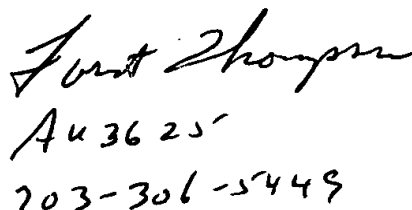 Forst Thompson
AU 3625
703-306-5449